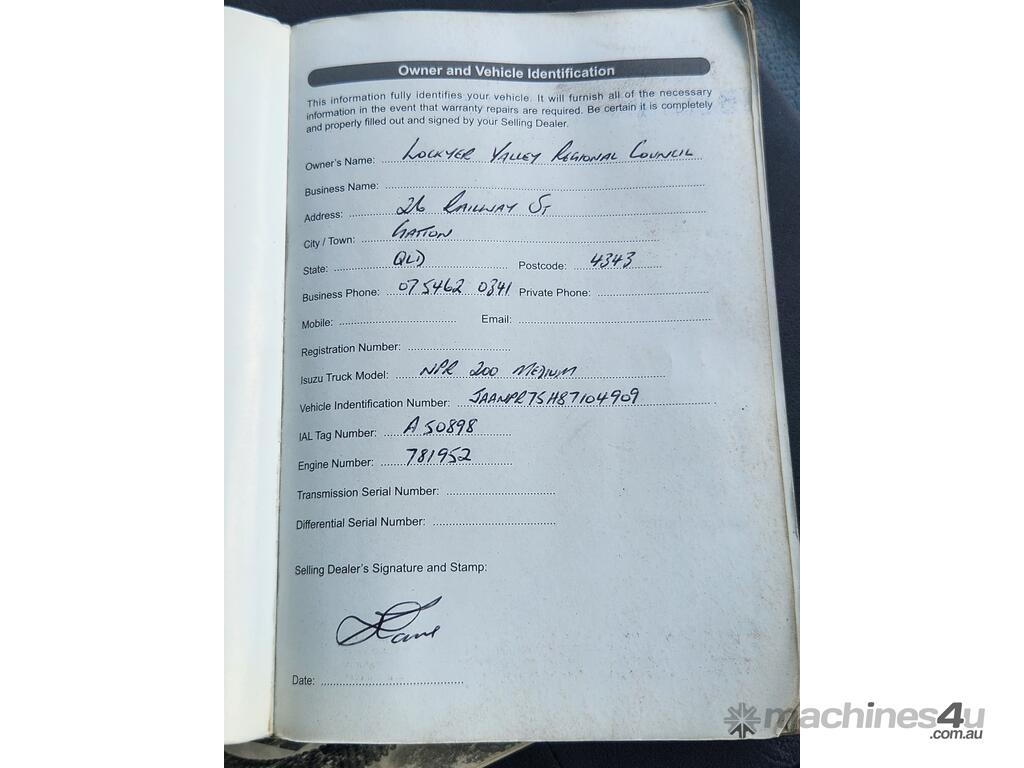 Owner and Vehicle Identification
This information fully identifies your vehicle. It will furnish all of the necessary
information in the event that warranty repairs are required. Be certain it is completely
and properly filled out and signed by your Selling Dealer.
Owner's Name: LOCKYER VALLEY REGIONAL COUNCIL
Business Name:
Address: 26 RAILWAY ST
City / Town: GATTON
State: QLD Postcode: 4343
Business Phone: 07 5462 0341 Private Phone:
Mobile: Email:
Registration Number:
Isuzu Truck Model: NPR 200 MEDIUM
Vehicle Indentification Number: JAANPR75H87104909
IAL Tag Number: A 50898
Engine Number: 781952
Transmission Serial Number:
Differential Serial Number:
Selling Dealer's Signature and Stamp:
Date:
machines4u
.com.au